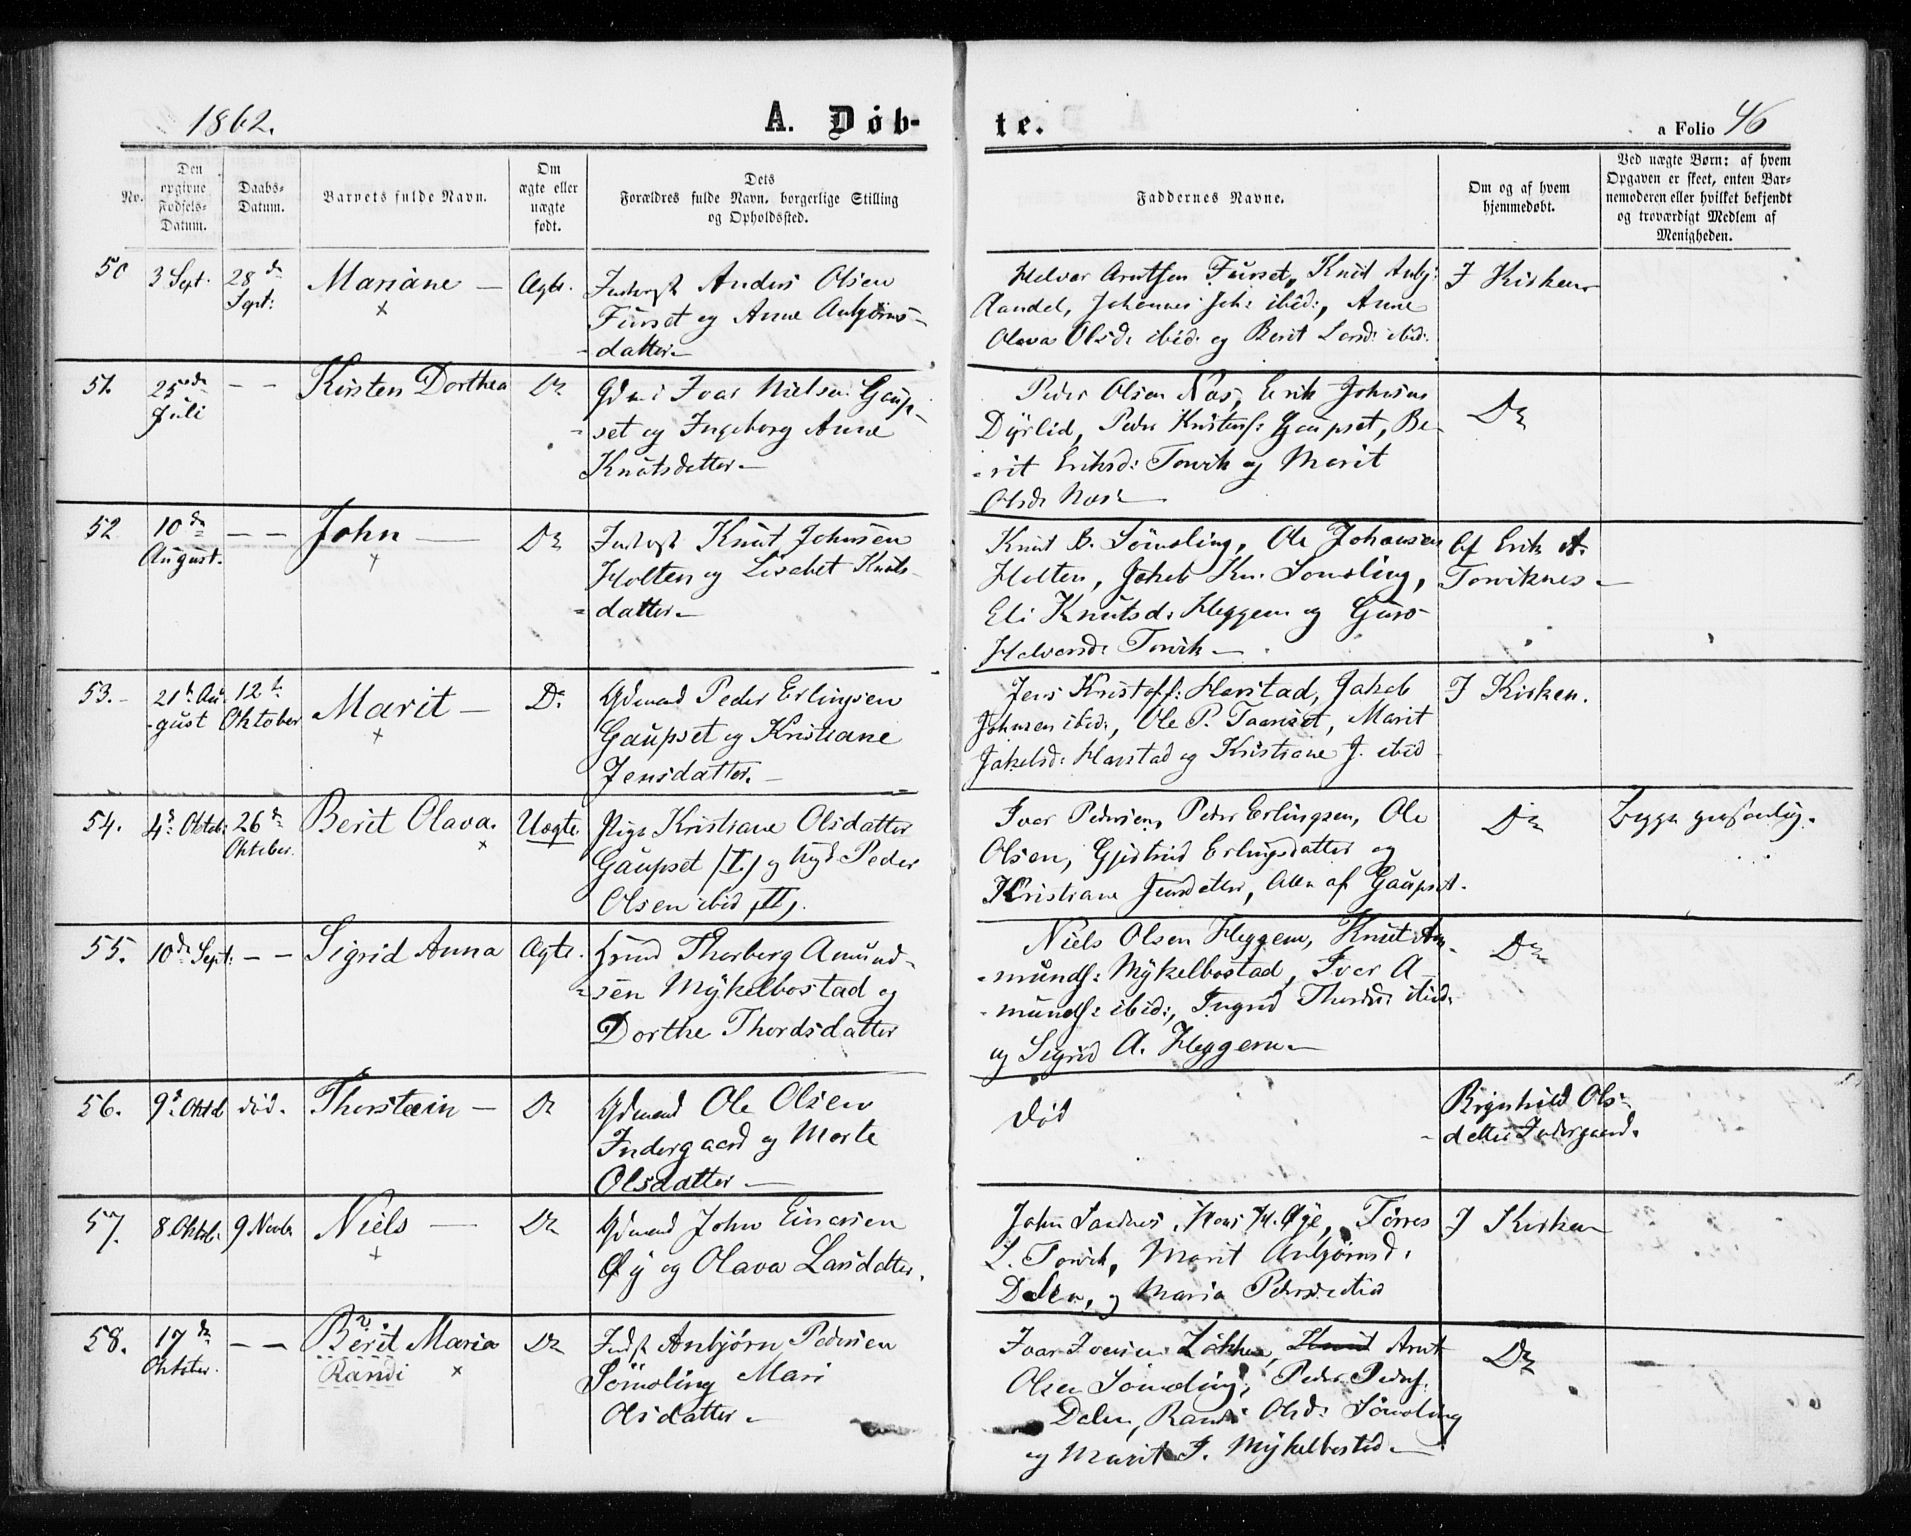 1862.
A. Døb-
te.
a Folio 46
No.
Den
opgivne
Fødsels-
Datum.
Daabs-
Datum.
Barnets fulde Navn.
Om
ægte eller
uægte
født.
Dets
Forældres fulde Navn, borgerlige Stilling
og Opholdssted.
Faddernes Navne.
Om og af hvem
hjemmedøbt.
Ved uægte Børn: af hvem
Opgaven er skeet, enten Bar-
nemoderen eller hvilket bekjendt
og troværdigt Medlem af
Menigheden.
50
3 Sept.
28 de
Sept:
Mariane —
×
Ægte.
Anders Olsen
Furset og Anne Anbjørns-
-datter.—
Helvar Arntsen Furset, Knut Anbj:
Aandal, Johannes Joh: ibid:, Anne
Olava Olsd: ibid: og Berit Larsd: ibid:
I Kirken
51.
25 de
Juli
— —
Kirsten Dorthea
Do
Gdm: Ivar Nielsen Gaup-
-set og Ingeborg Anne
Knutsdatter—
Peder Olsen Næs, Erik Johnsen
Dyrlid, Peder Kristens: Gaupset, Be-
-rit Eriksd: Torvik og Marit
Olsd: Næs —
Do
52
10 de
August.
— —
John —
+
Do
Knut Johnsen
Holten og Lisabet Knuts-
-datter—
Knut B. Sømoling, Ole Johansen
Holten, Jakob Kn. Sømoling,
Eli Knutsd: Heggem og Guro
Halvorsd: Torvik —
Af Erik A.
Torviknes—
53.-
21 de Au-
-gust
12 te
Oktober
Marit —
×
Do
Gdmand Peder Erlingsen
Gaupset og Kristiane
Jensdatter.—
Jens Kristoff: Harstad, Jakob
Johnsen ibid:, Ole P. Taarset, Marit
Jakobsd: Harstad og Kristiane J. ibid
I Kirken.
54.
4 de Oktob:
26 de
Oktober.
Berit Olava.
×
Uægte
Pige Kristiane Olsdatter
Gaupset (I.) og Peder
Olsen ibid (II).
Iver Pedersen, Peder Erlingsen, Ole
Olsen, Gjertrud Erlingsdatter og
Kristiane Jensdatter, Alle af Gaupset.
Do
55.
10 de Sept:
— —
Sigrid Anna
Ægte.
Thorberg Amund-
-sen Mykelbostad og
Dorthe Thordsdatter
Niels Olsen Heggem, Knut Am-
-munds: Mykelbostad, Iver A-
-munds: ibid:, Ingrid Thordsd: ibid:
og Sigrid A. Heggem—
Do
56.
9 de Oktob
død.
Thorstein —
Do
Gdmand Ole Olsen
Indergaard og Marte
Olsdatter —
Død
Ragnhild Ols-
-datter Indergaard.
57.
8 Oktob.
9 Novbr.
Niels —
+
Do
Gdmand John Einarsen
Øy og Olava Larsdatter.
John Sandnes, Hans H. Øye, Tørres
L. Torvik, Marit Anbjørnsd:
Dalen, og Maria Pedersd: ibid
I Kirken
58.
17 de
Oktober.
— —
Berit Maria
Randi
×
Do
Anbjørn Pedersen
Sømoling Mari
Olsdatter.—
Ivar Iversen Løkken, Knut Arnt
Olsen Sømoling, Peder Peders:
Dalen, Randi Olsd: Sømoling
og Marit I. Mykelbostad—
Do